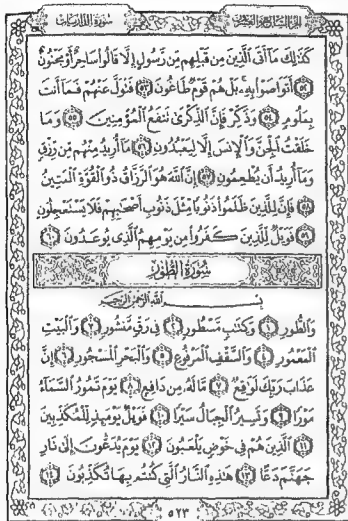 الجزء السابع والعشرون سورة الذاريات
كَذَٰلِكَ مَا أَتَى الَّذِينَ مِن قَبْلِهِم مِّن رَّسُولٍ إِلَّا قَالُوا سَاحِرٌ أَوْ مَجْنُونٌ
﴿٥٢﴾ أَتَوَاصَوْا بِهِ ۚ بَلْ هُمْ قَوْمٌ طَاغُونَ ﴿٥٣﴾ فَتَوَلَّ عَنْهُمْ فَمَا أَنتَ
بِمَلُومٍ ﴿٥٤﴾ وَذَكِّرْ فَإِنَّ الذِّكْرَىٰ تَنفَعُ الْمُؤْمِنِينَ ﴿٥٥﴾ وَمَا
خَلَقْتُ الْجِنَّ وَالْإِنسَ إِلَّا لِيَعْبُدُونِ ﴿٥٦﴾ مَا أُرِيدُ مِنْهُم مِّن رِّزْقٍ
وَمَا أُرِيدُ أَن يُطْعِمُونِ ﴿٥٧﴾ إِنَّ اللَّهَ هُوَ الرَّزَّاقُ ذُو الْقُوَّةِ الْمَتِينُ
﴿٥٨﴾ فَإِنَّ لِلَّذِينَ ظَلَمُوا ذَنُوبًا مِّثْلَ ذَنُوبِ أَصْحَابِهِمْ فَلَا يَسْتَعْجِلُونِ
﴿٥٩﴾ فَوَيْلٌ لِّلَّذِينَ كَفَرُوا مِن يَوْمِهِمُ الَّذِي يُوعَدُونَ ﴿٦٠﴾
سُورَةُ الطُّورِ
بِسْمِ اللَّهِ الرَّحْمَٰنِ الرَّحِيمِ
وَالطُّورِ ﴿١﴾ وَكِتَابٍ مَّسْطُورٍ ﴿٢﴾ فِي رَقٍّ مَّنشُورٍ ﴿٣﴾ وَالْبَيْتِ
الْمَعْمُورِ ﴿٤﴾ وَالسَّقْفِ الْمَرْفُوعِ ﴿٥﴾ وَالْبَحْرِ الْمَسْجُورِ ﴿٦﴾ إِنَّ
عَذَابَ رَبِّكَ لَوَاقِعٌ ﴿٧﴾ مَّا لَهُ مِن دَافِعٍ ﴿٨﴾ يَوْمَ تَمُورُ السَّمَاءُ
مَوْرًا ﴿٩﴾ وَتَسِيرُ الْجِبَالُ سَيْرًا ﴿١٠﴾ فَوَيْلٌ يَوْمَئِذٍ لِّلْمُكَذِّبِينَ
﴿١١﴾ الَّذِينَ هُمْ فِي خَوْضٍ يَلْعَبُونَ ﴿١٢﴾ يَوْمَ يُدَعُّونَ إِلَىٰ نَارِ
جَهَنَّمَ دَعًّا ﴿١٣﴾ هَٰذِهِ النَّارُ الَّتِي كُنتُم بِهَا تُكَذِّبُونَ ﴿١٤﴾
٥٢٣